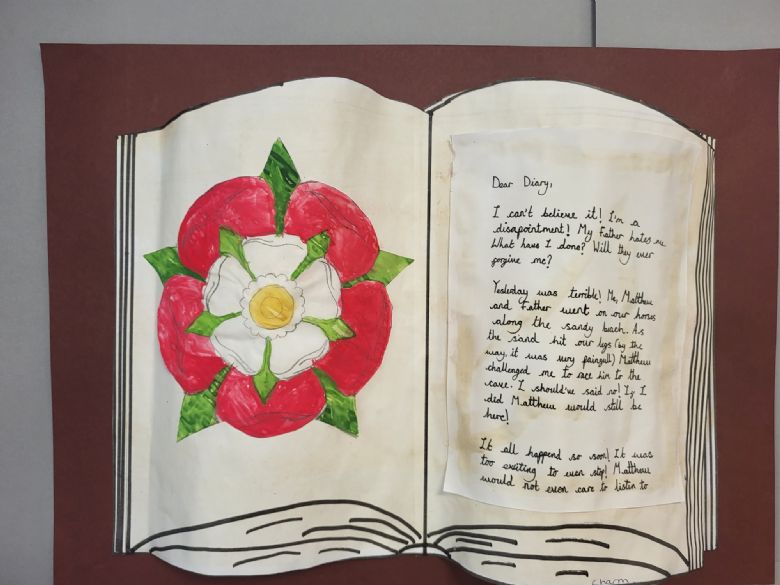 Dear Diary,
I can't believe it! I'm a
disapointment! My Father hates me.
What have I done? Will they ever
forgive me?
Yesterday was terrible! Me, Matthew
and Father went on our horses
along the sandy beach. As
the sand hit our legs (by the
way, it was very painful!) Matthew
challenged me to race him to the
cave. I should've said no! If I
did Matthew would still be
here!
It all happend so soon! It was
too exiting to even stop! Matthew
would not even care to listen to